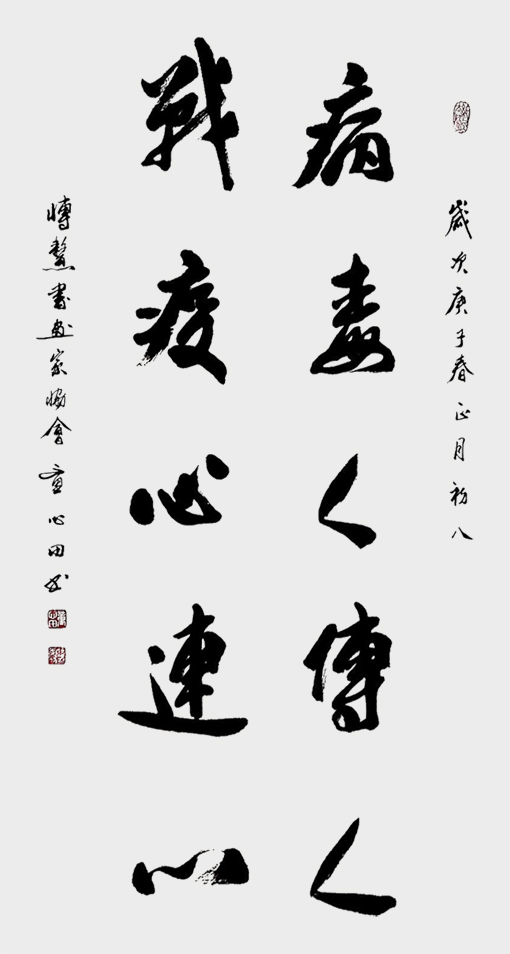 歲次庚子春正月初八
病毒人傳人
戰疫心連心
愽鰲書畫家協會 心田書